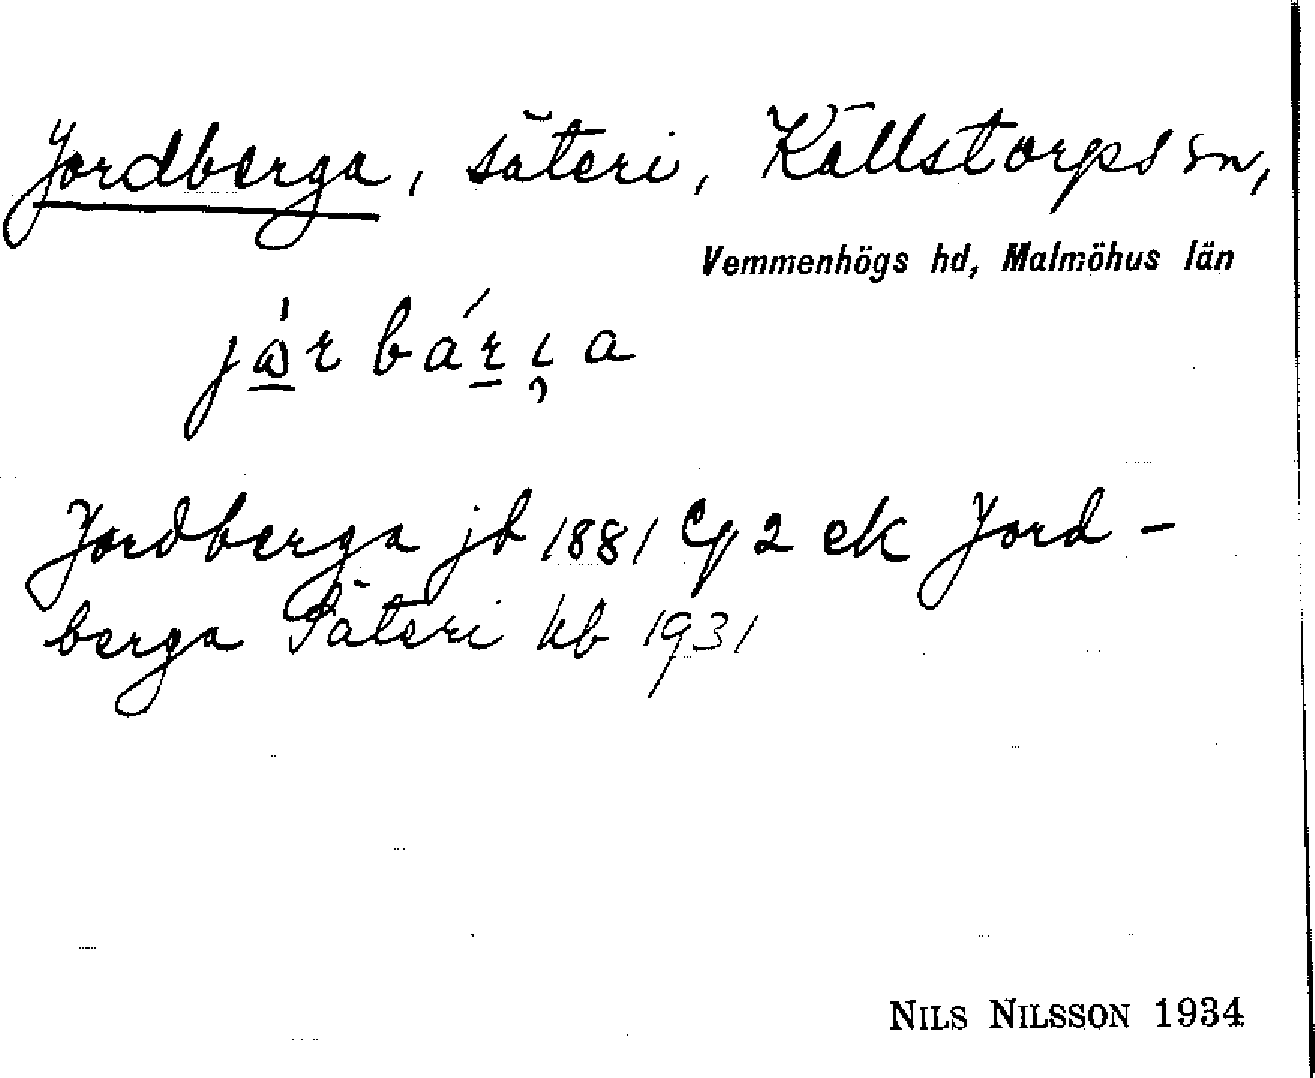 Jordberga, säteri, Källstorps sn,
Vemmenhögs hd, Malmöhus län
Jordberga jb 1881 Cg 2 ek Jord-
berga Säteri kb 1931
NILS NILSSON 1934